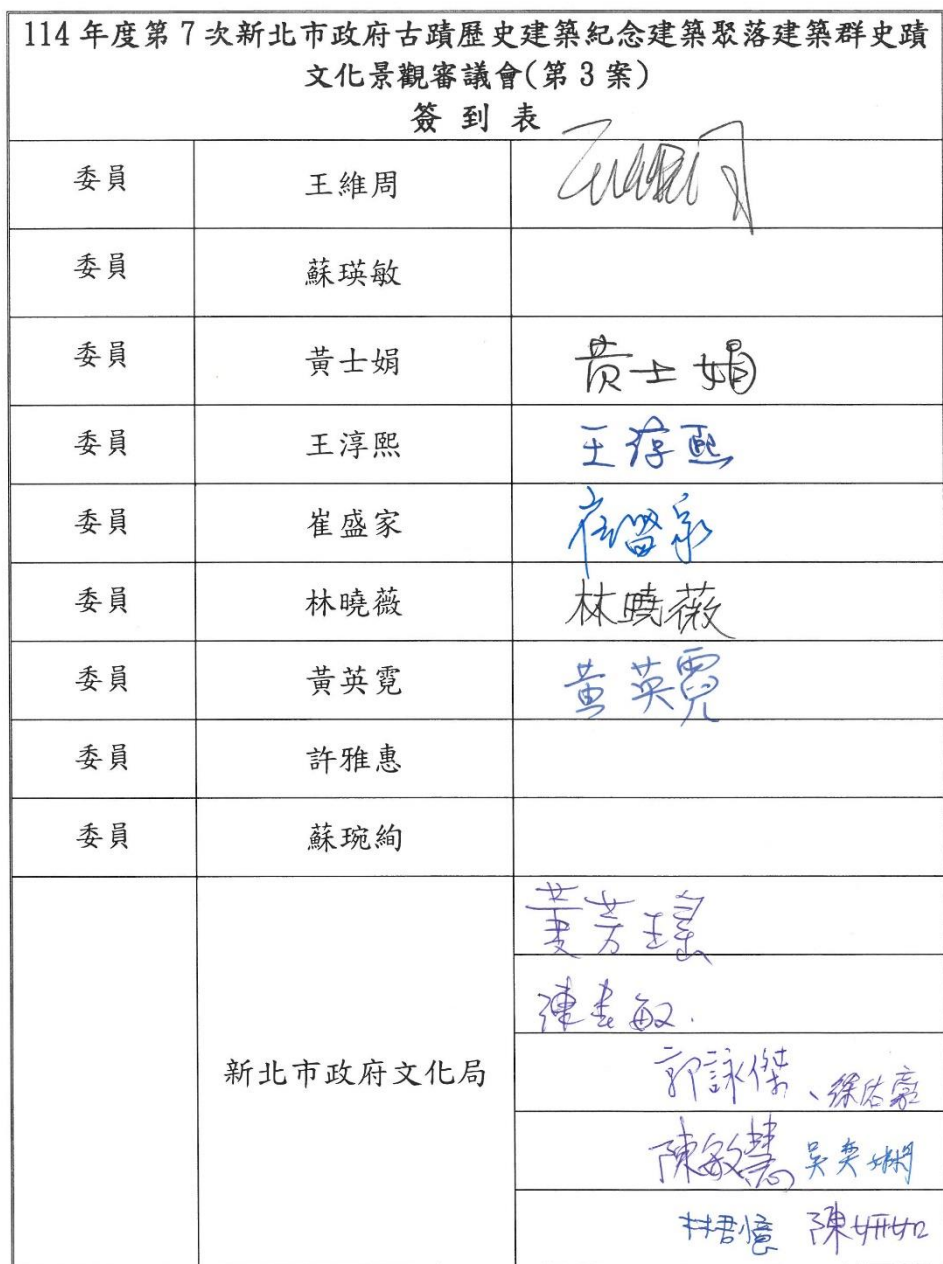 114 年度第 7 次新北市政府古蹟歷史建築紀念建築聚落建築群史蹟
文化景觀審議會(第 3 案)
簽 到 表
委員 王維周
委員 蘇瑛敏
委員 黃士娟 黃士娟
委員 王淳熙 王淳熙
委員 崔盛家 崔盛家
委員 林曉薇 林曉薇
委員 黃英霓 黃英霓
委員 許雅惠
委員 蘇琬絢
新北市政府文化局
郭詠傑、徐佑豪
陳敏慧 吳奕嫻
林君憶 陳妍如